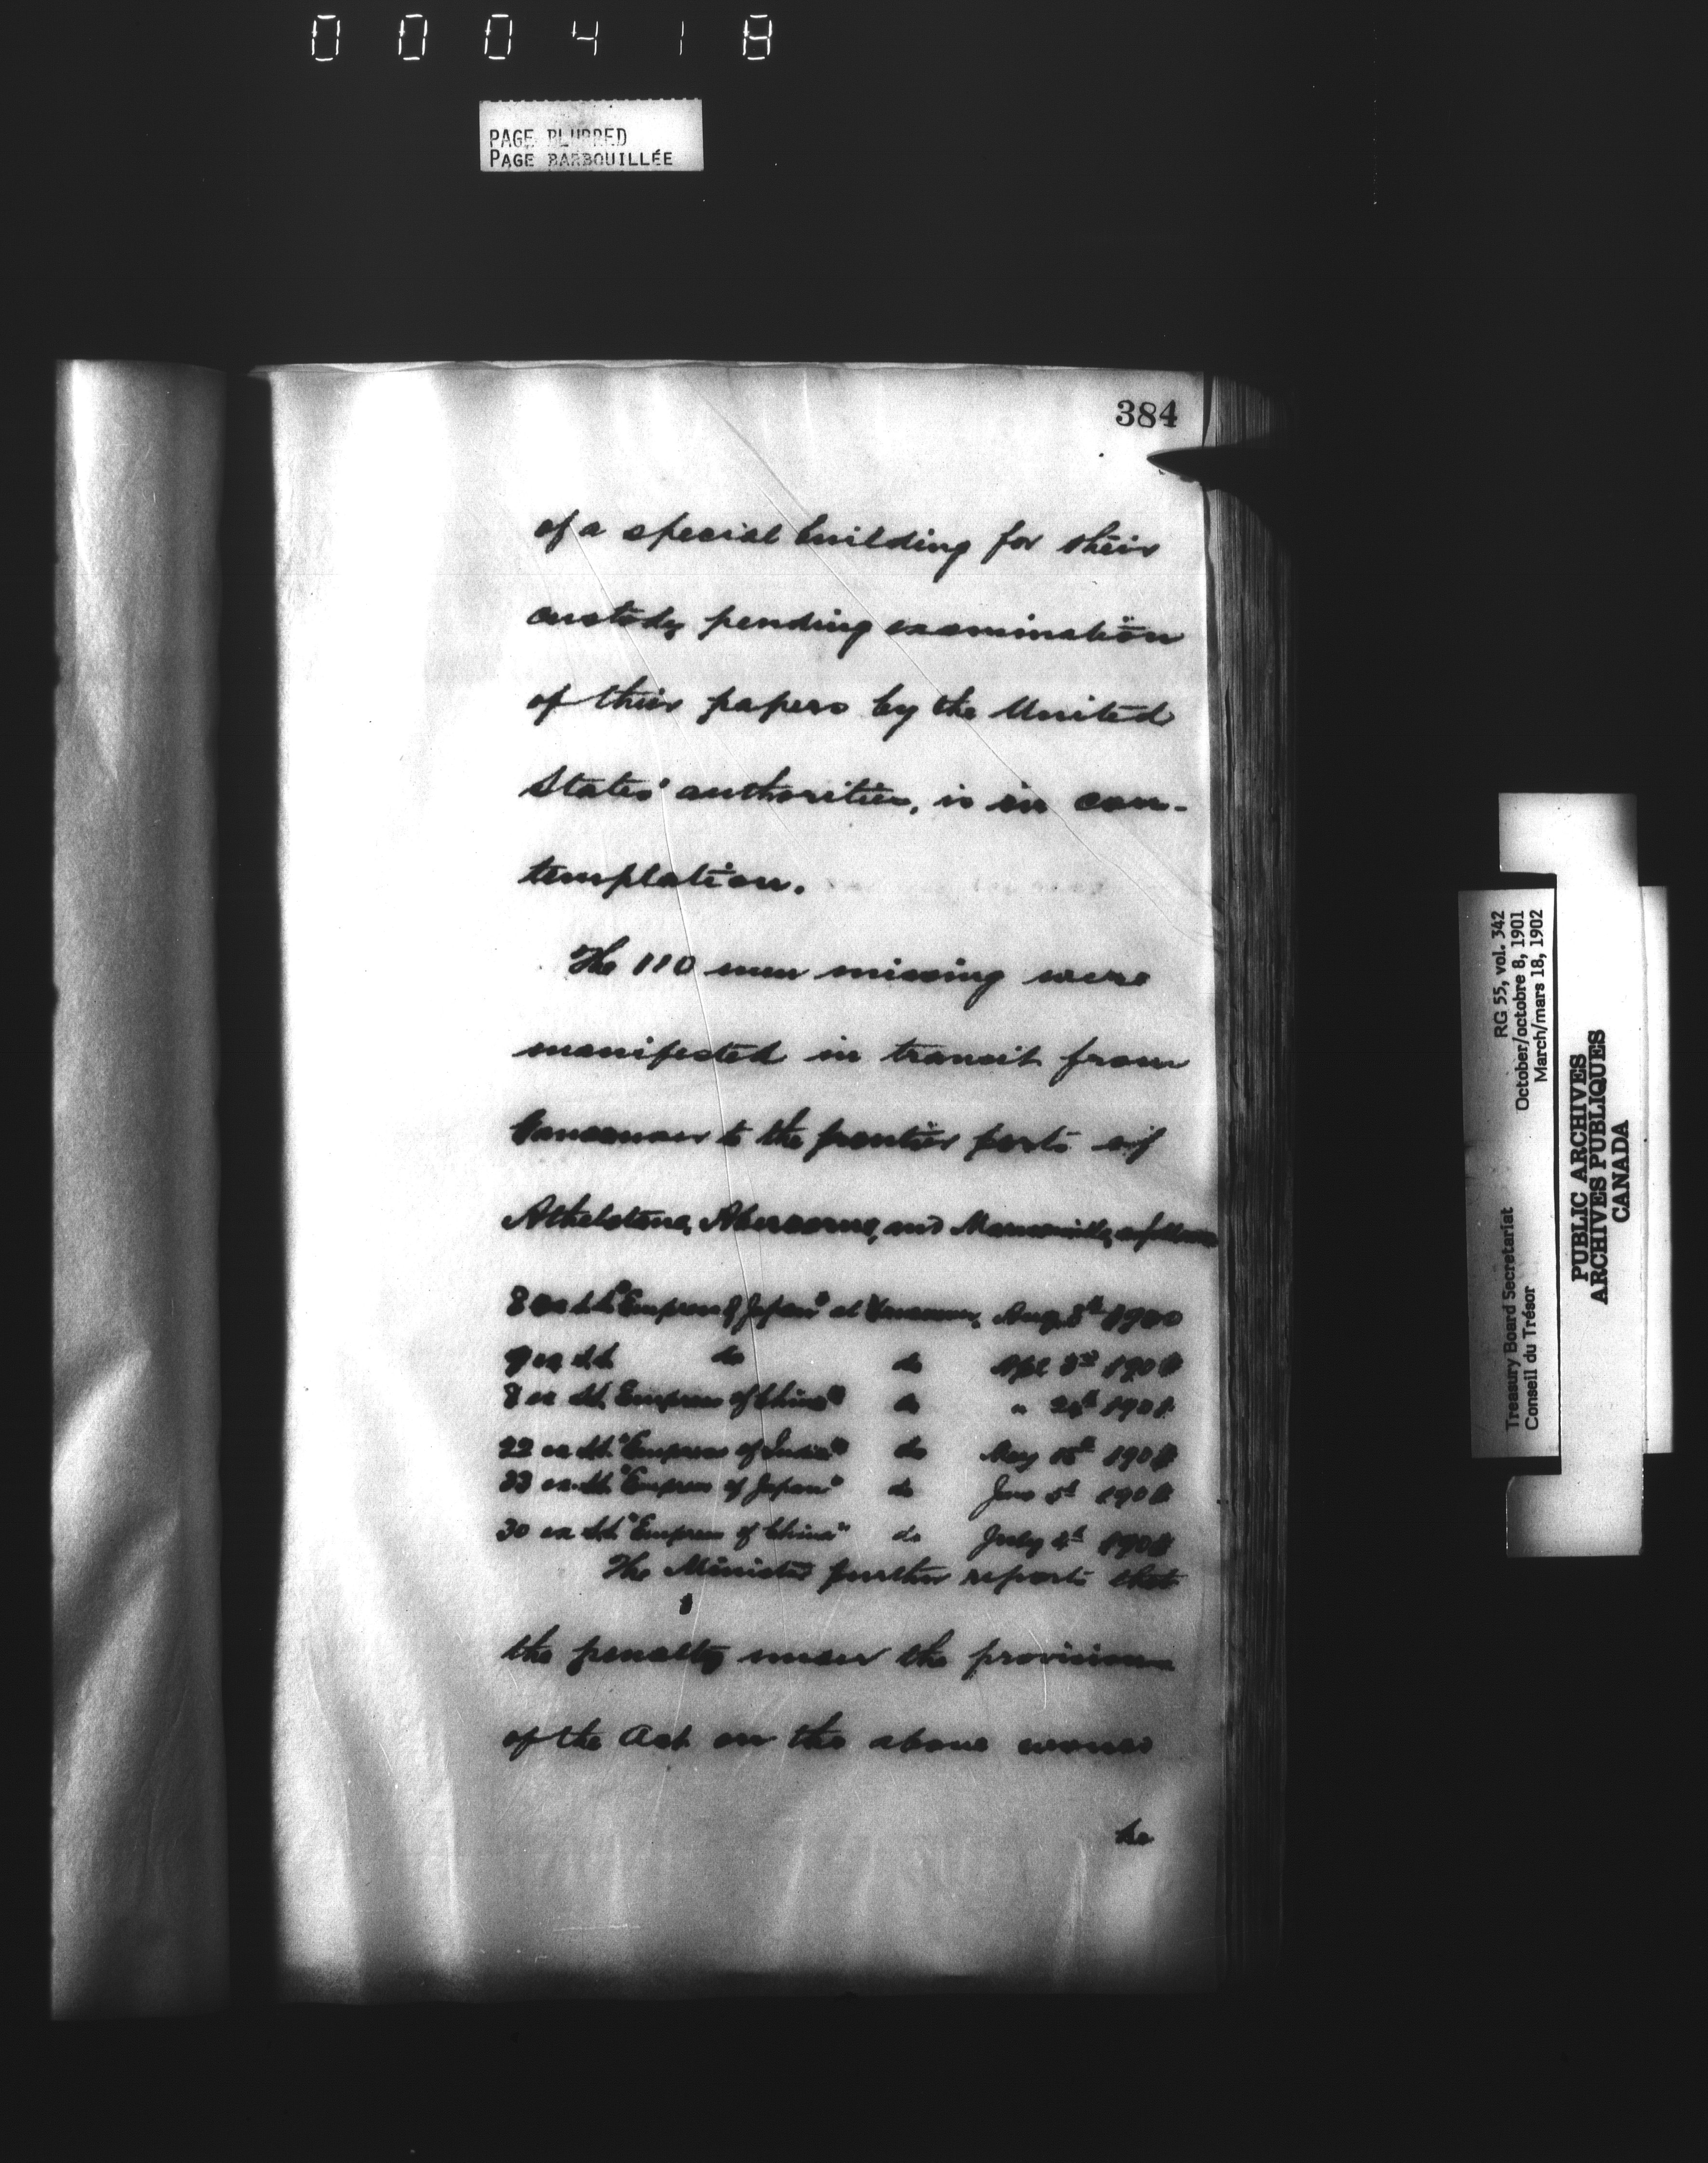 000418
PAGE BLURRED
PAGE BARBOUILLÉE
384
of a special building for their
custody pending examination
of their papers by the United
States' authorities, is in con-
templation.
The 110 men missing were
manifested in transit from
Vancouver to the frontier ports of
Athelstane, Abercorne, and Mansonville, as follows
8 ex s.s. "Empress of Japan" at Vancouver, Aug. 8th 1900
9 ex s.s. do do Apl 3rd 1901
8 ex s.s. Empress of China" do " 24th 1901
22 ex s.s. "Empress of India" do May 15th 1901
33 ex s.s. "Empress of Japan" do June 5th 1901
30 ex s.s. "Empress of China" do July 4th 1901
The Minister further reports that
the penalty under the provisions
of the Act on the above would
be
Treasury Board Secretariat RG 55, vol. 342
Conseil du Trésor October/octobre 8, 1901
March/mars 18, 1902
PUBLIC ARCHIVES
ARCHIVES PUBLIQUES
CANADA